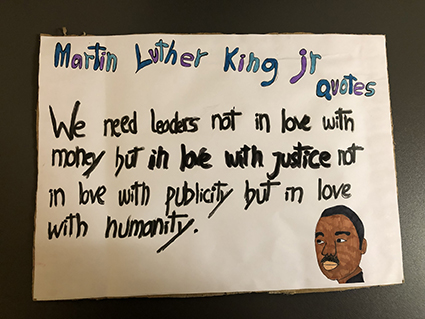 Martin Luther King jr
Quotes
We need leaders not in love with
money but in love with justice not
in love with publicity but in love
with humanity.